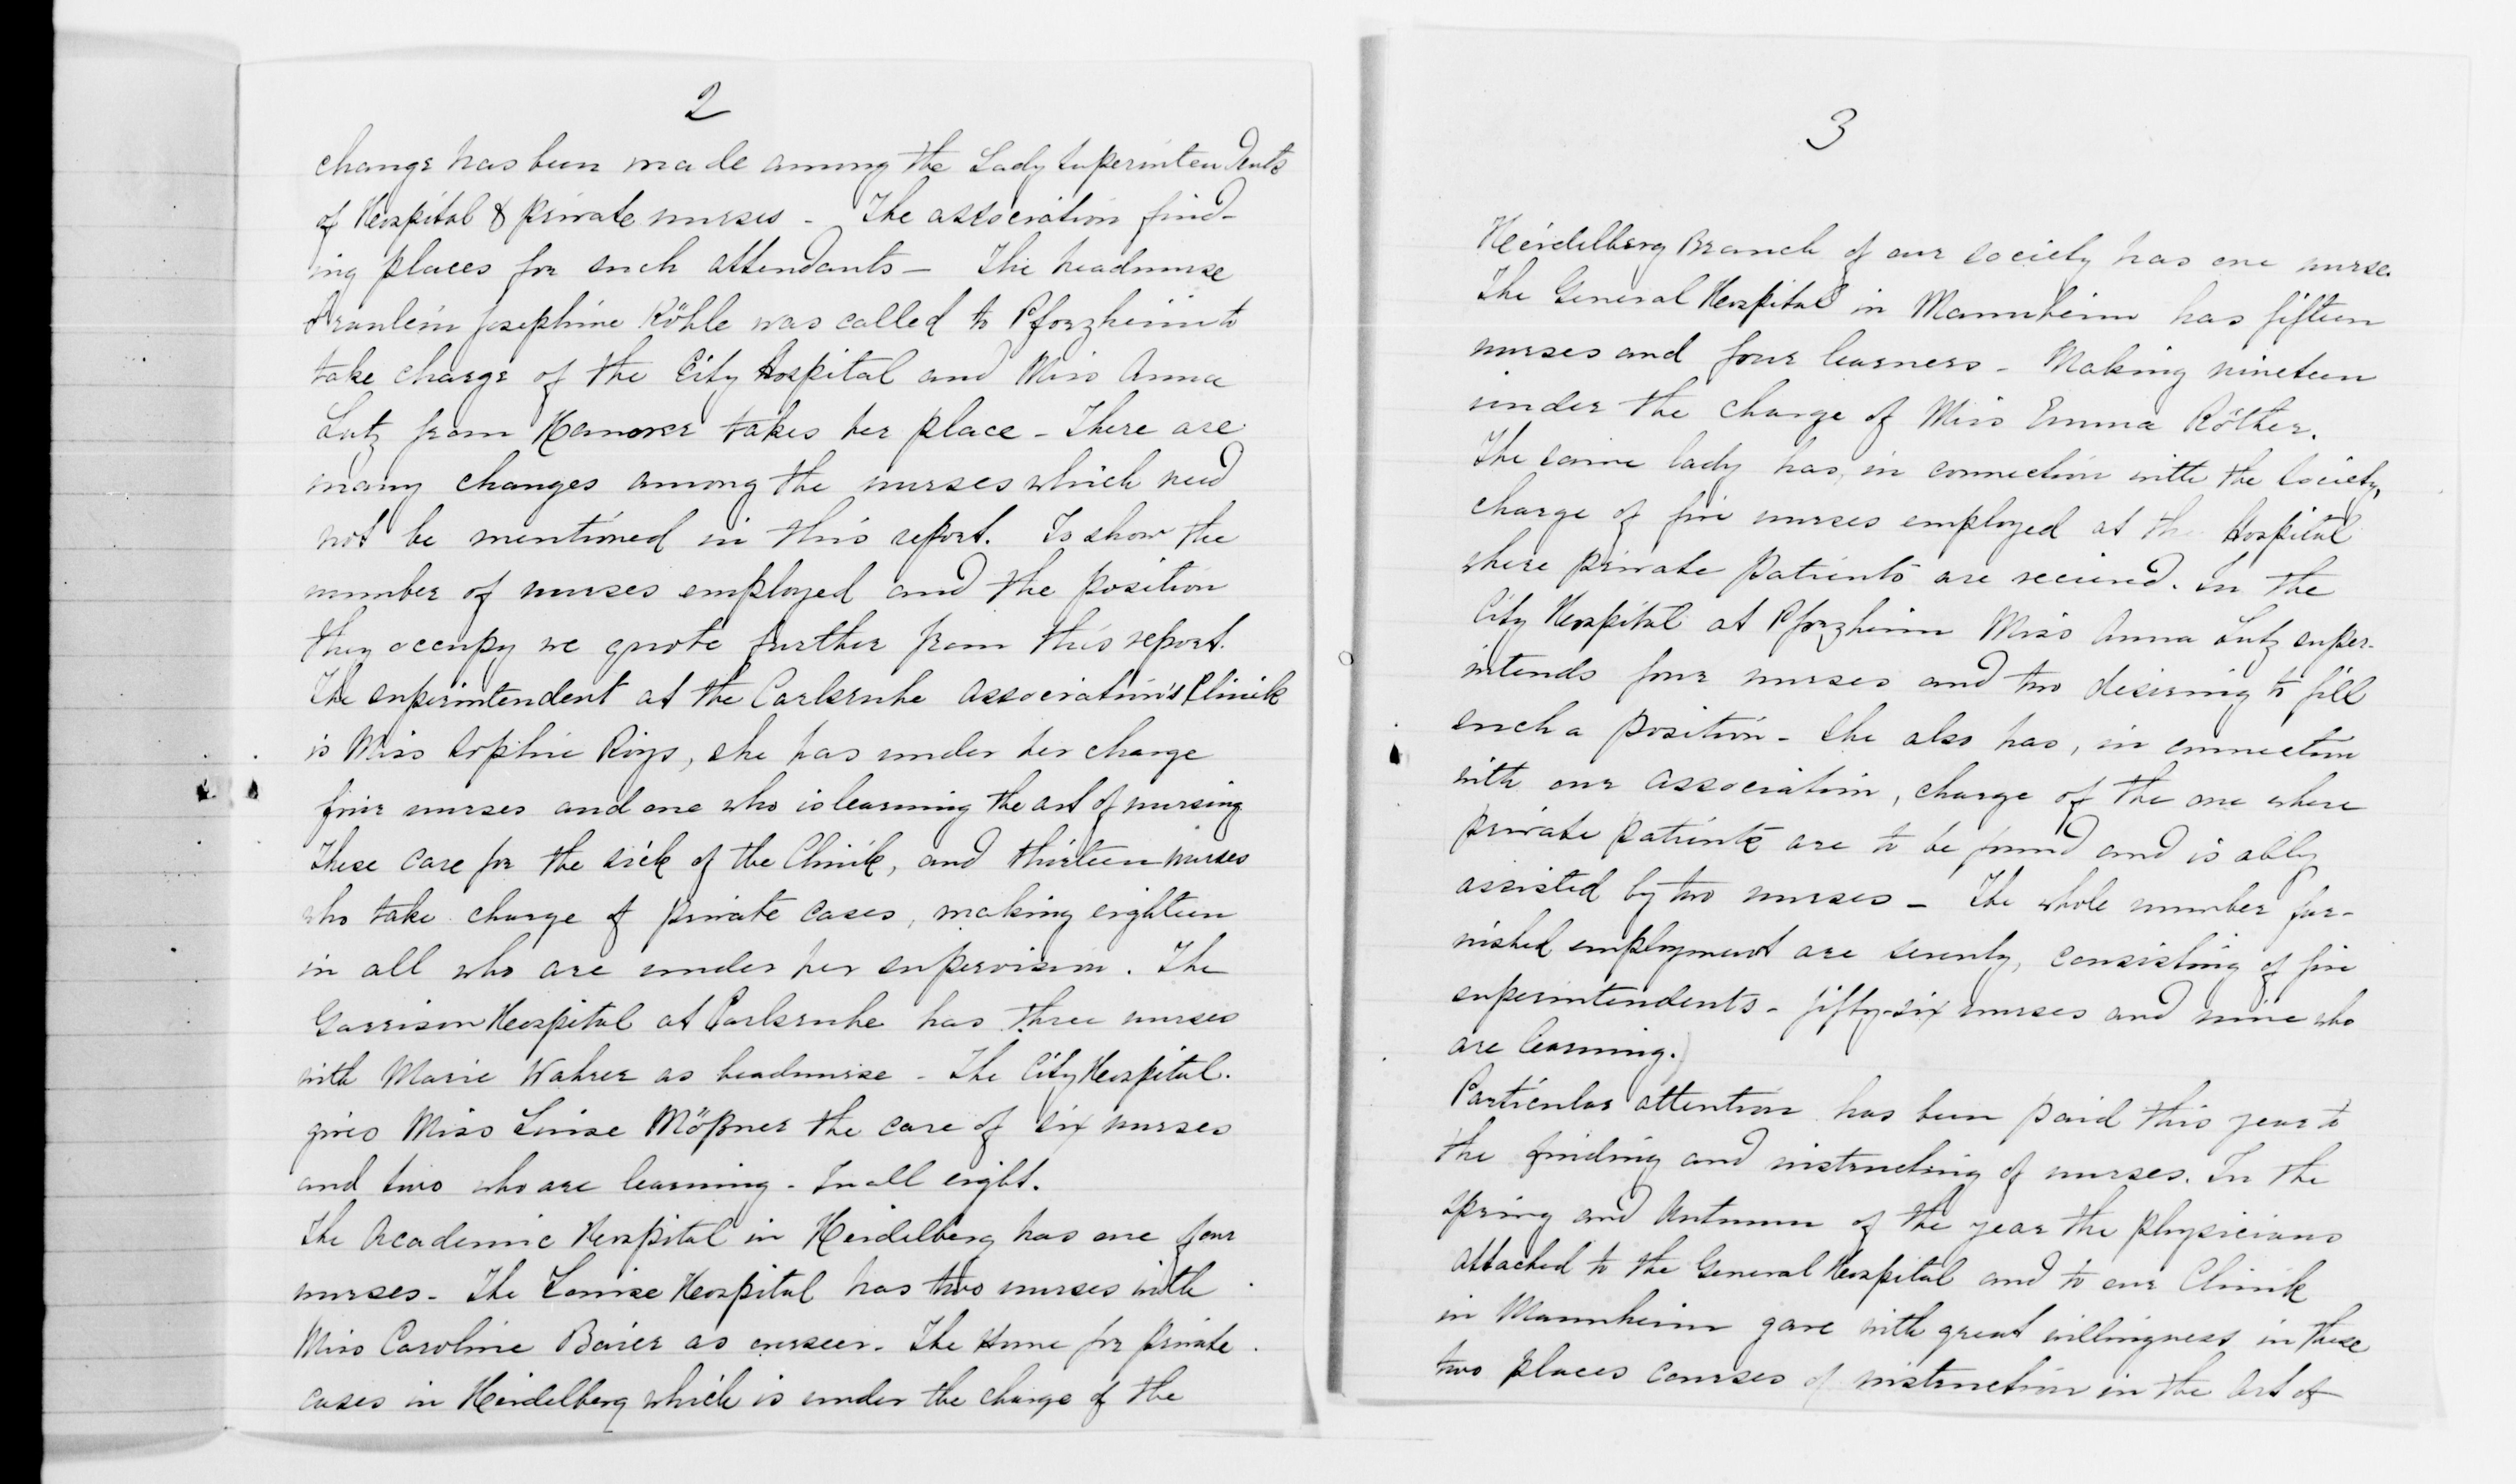 2
change has been made among the Lady Superintendents
of Hospital & private nurses - The association find-
ing places for such attendants - The headnurse
Fraulein Josephine Köhle was called to Pforzheim to
take charge of the City Hospital and Miss Anna
Lutz from Hanover takes her place - There are
many changes among the nurses which need
not be mentioned in this report. To show the
number of nurses employed and the position
they occupy we quote further from this report.
The superintendent at the Carlsruhe Association's Clinik
is Miss Sophie Roys, she has under her charge
four nurses and one who is learning the art of nursing
These care for the sick of the Clinik, and thirteen nurses
who take charge of private cases, making eighteen
in all who are under her supervision. The
Garrison Hospital at Carlsruhe has three nurses
with Marie Wahrer as headnurse - The City Hospital.
gives Miss Luise Mößner the care of six nurses
and two who are learning - In all eight.
The Academic Hospital in Heidelberg has one four
nurses - The Louise Hospital has two nurses with
Miss Caroline Baier as overseer. The Home for private
cases in Heidelberg which is under the charge of the
3
Heidelberg Branch of our society has one nurse.
The General Hospital in Mannheim has fifteen
nurses and four learners - Making nineteen
under the charge of Miss Emma Köther.
The same lady has, in connection with the Society,
charge of five nurses employed at the Hospital
where private patients are recieved. In the
City Hospital at Pforzheim Miss Anna Lutz super-
intends four nurses and two desiring to fill
such a position - She also has, in connection
with our association, charge of the one where
private patients are to be found and is ably
assisted by two nurses - The whole number fur-
nished employment are seventy, consisting of five
superintendents - fifty-six nurses and nine who
are learning.)
Particular attention has been paid this year to
the finding and instructing of nurses. In the
Spring and Autumn of the year the physicians
attached to the General Hospital and to our Clinik
in Mannheim gave with great willingness in these
two places courses of instruction in the art of